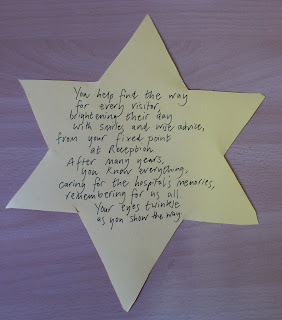 You help find the way
for every visitor,
brightening their day
with smiles and wise advice,
from your fixed point
at Reception
After many years,
you know everything,
caring for the hospital's memories,
remembering for us all
Your eyes twinkle
as you show the way.